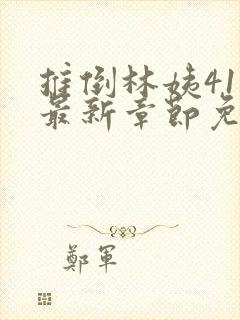 推倒林姨41
最新章節免
鄭軍